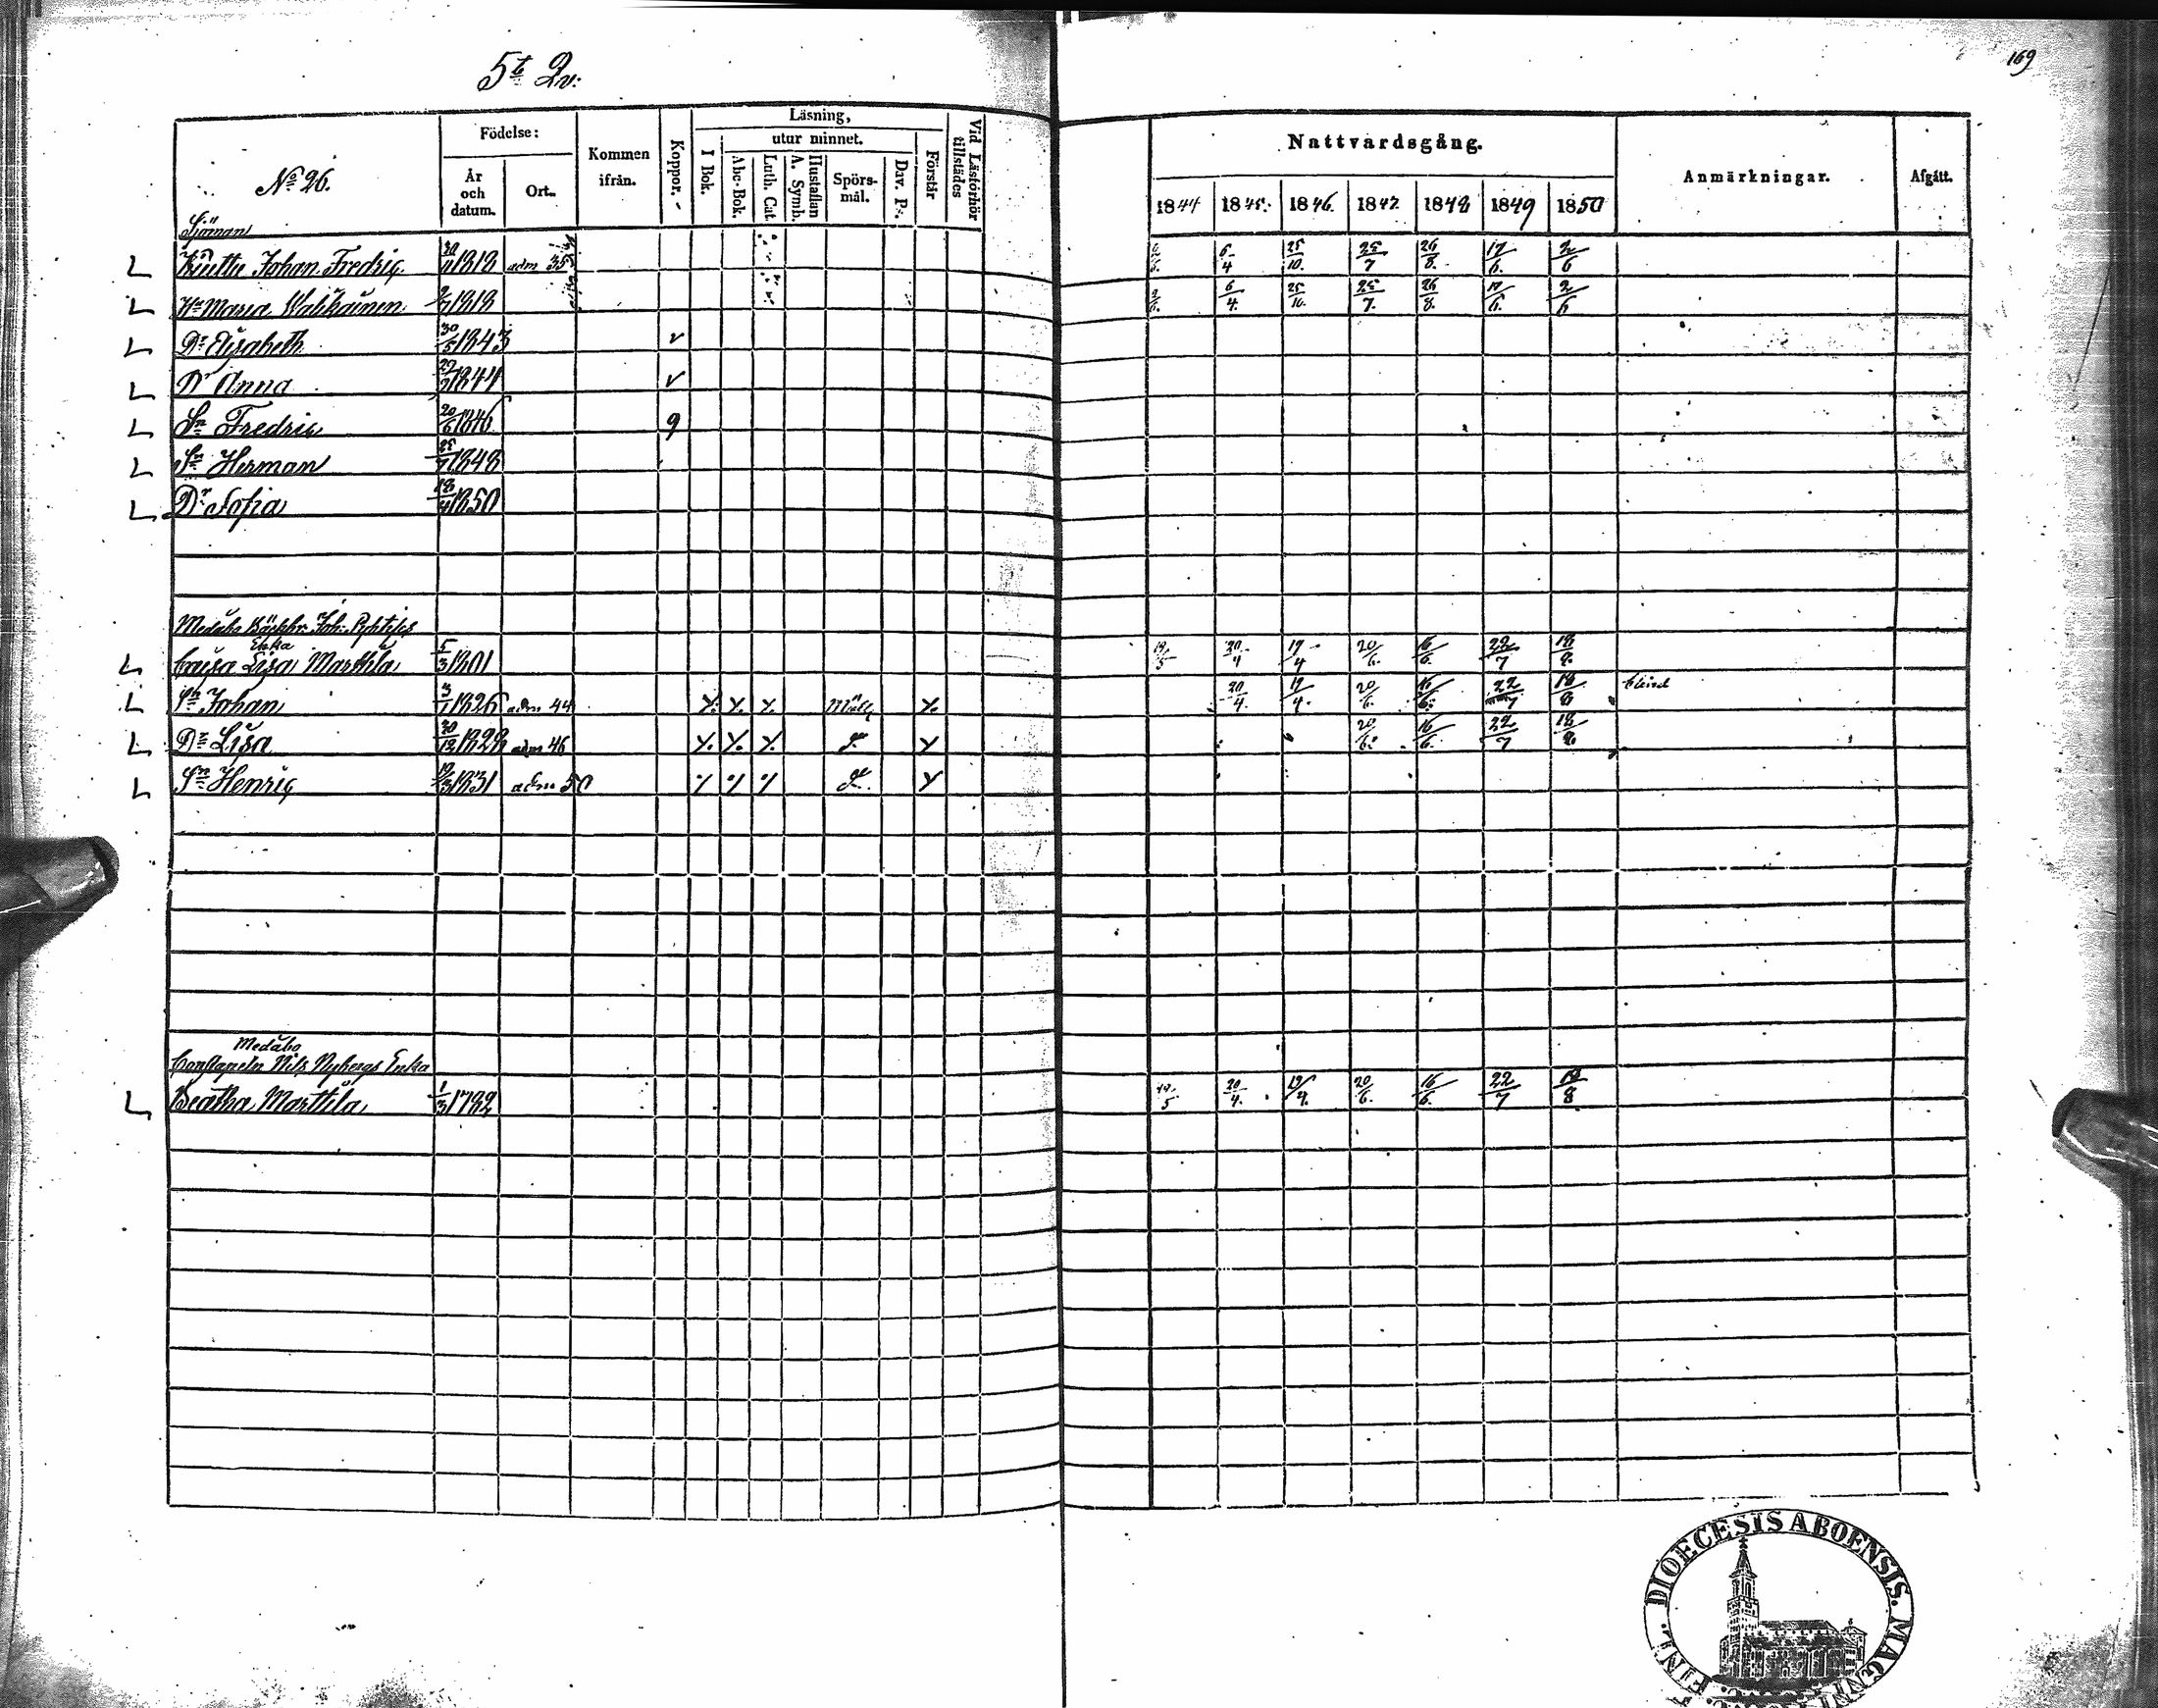 5t Qv:
169
No 26.
Födelse:
År och datum.
Ort.
Kommen ifrån.
Koppor.
Läsning,
I Bok.
utur minnet.
Abc-Bok.
Luth. Cat.
Hustaflan A. Symb.
Spörs-mål.
Dav. Ps.
Förstår
Vid Läsförhör tillstädes
Nattvardsgång.
1844 1845. 1846. 1847. 1848 1849 1850
Anmärkningar.
Afgått.
Sjöman
Johan Fredric 30/ 1818 adm 35 6/4 25/10. 25/7 26/8. 17/6. 2/6
Hu Maria 1818 6/4. 25/10. 25/7. 26/8. 17/6. 2/6
Dr Elisabeth 30/5 1843 v
Dr Anna 1844 v
Sn Fredric 20/6 1846 9
Sn Herman 25/7 1848
Dr Sofia 18/4 1850
Medåbo Joh.
Enka
Cajsa Lisa Marthila 5/3 1801 19/5 20/4 19/4 20/6. 16/6. 22/7 18/8
Sn Johan 3/1 1826 adm 44 20/4. 19/4. 20/6. 16/6. 22/7 18/8 blind
Dr Lisa 20/12 1828 adm 46 20/6. 16/6. 22/7 18/8
Sn Henric 1831 adm 50
Medåbo
Constapeln Nils Nybergs Enka
Beatha Marttila 1/3 1782 19/5 20/4. 19/4. 20/6. 16/6. 22/7 18/8
DIOECESIS ABOENSIS. MAGNI
FINL.